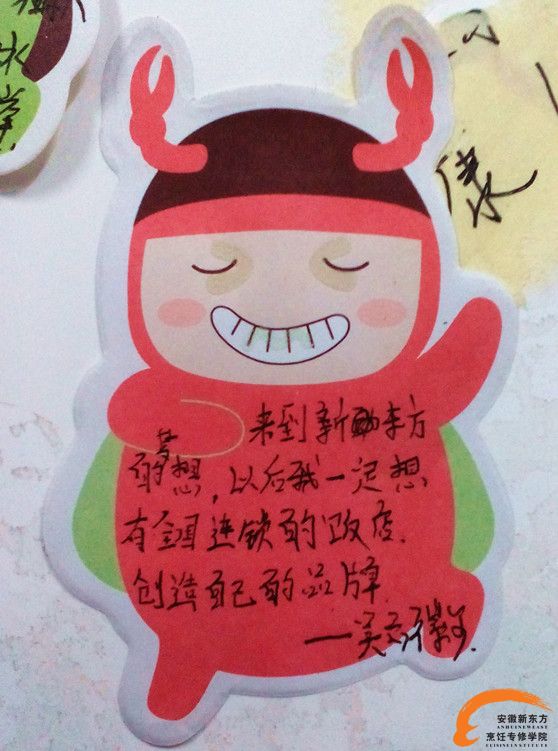 来到新东方
的梦想，以后我一定想
有全国连锁的饭店.
创造自己的品牌.
安徽新东方
ANHUINEWEAST
烹饪专修学院
CUISINEINSTITUTE